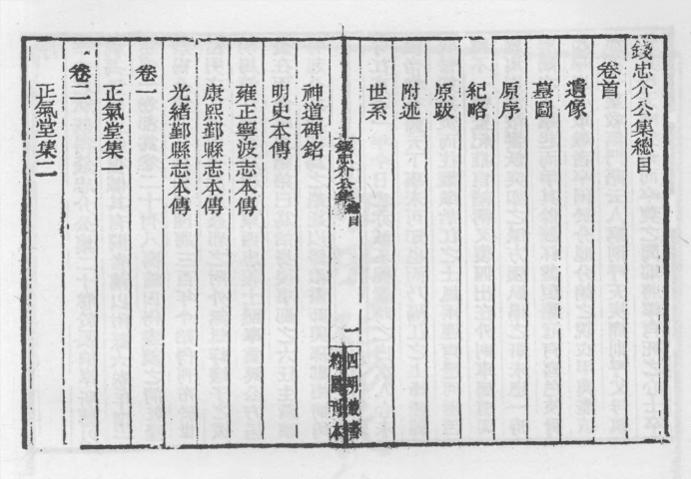 錢忠介公集總目
卷首
遺像
墓圖
原序
紀略
原跋
附述
世系
錢忠介公集 總目
一
四明叢書
約園刊本
神道碑銘
明史本傳
雍正寧波志本傳
康熙鄞縣志本傳
光緒鄞縣志本傳
卷一
正氣堂集一
卷二
正氣堂集二